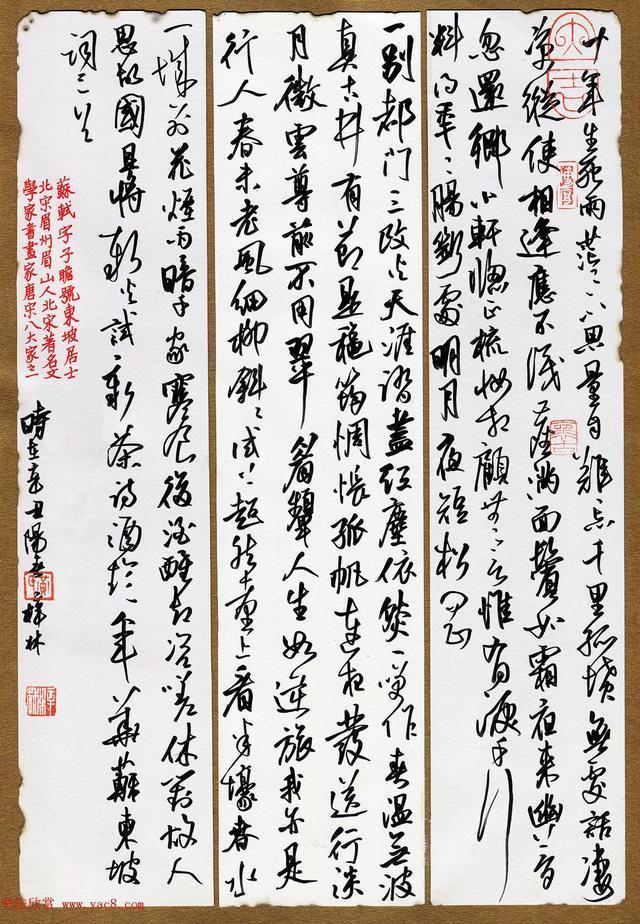 十年生死兩茫茫不思量自難忘千里孤墳無處話淒
涼縱使相逢應不識塵滿面鬢如霜夜來幽夢
忽還鄉小軒窗正梳妝相顧無言惟有淚千行
料得年年腸斷處明月夜短松岡
一別都門三改火天涯踏盡紅塵依然一笑作春溫無波
真古井有節是秋筠惆悵孤帆連夜發送行淡
月微雲尊前不用翠眉顰人生如逆旅我亦是
行人春未老風細柳斜斜試上超然臺上看半壕春水
一城花煙雨暗千家寒食後酒醒卻咨嗟休對故人
思故國且將新火試新茶詩酒趁年華蘇東坡
詞三首
蘇軾字子瞻號東坡居士
北宋眉州眉山人北宋著名文
學家書畫家唐宋八大家之一
時在辛丑陽春祥林
书法欣赏 www.yac8.com